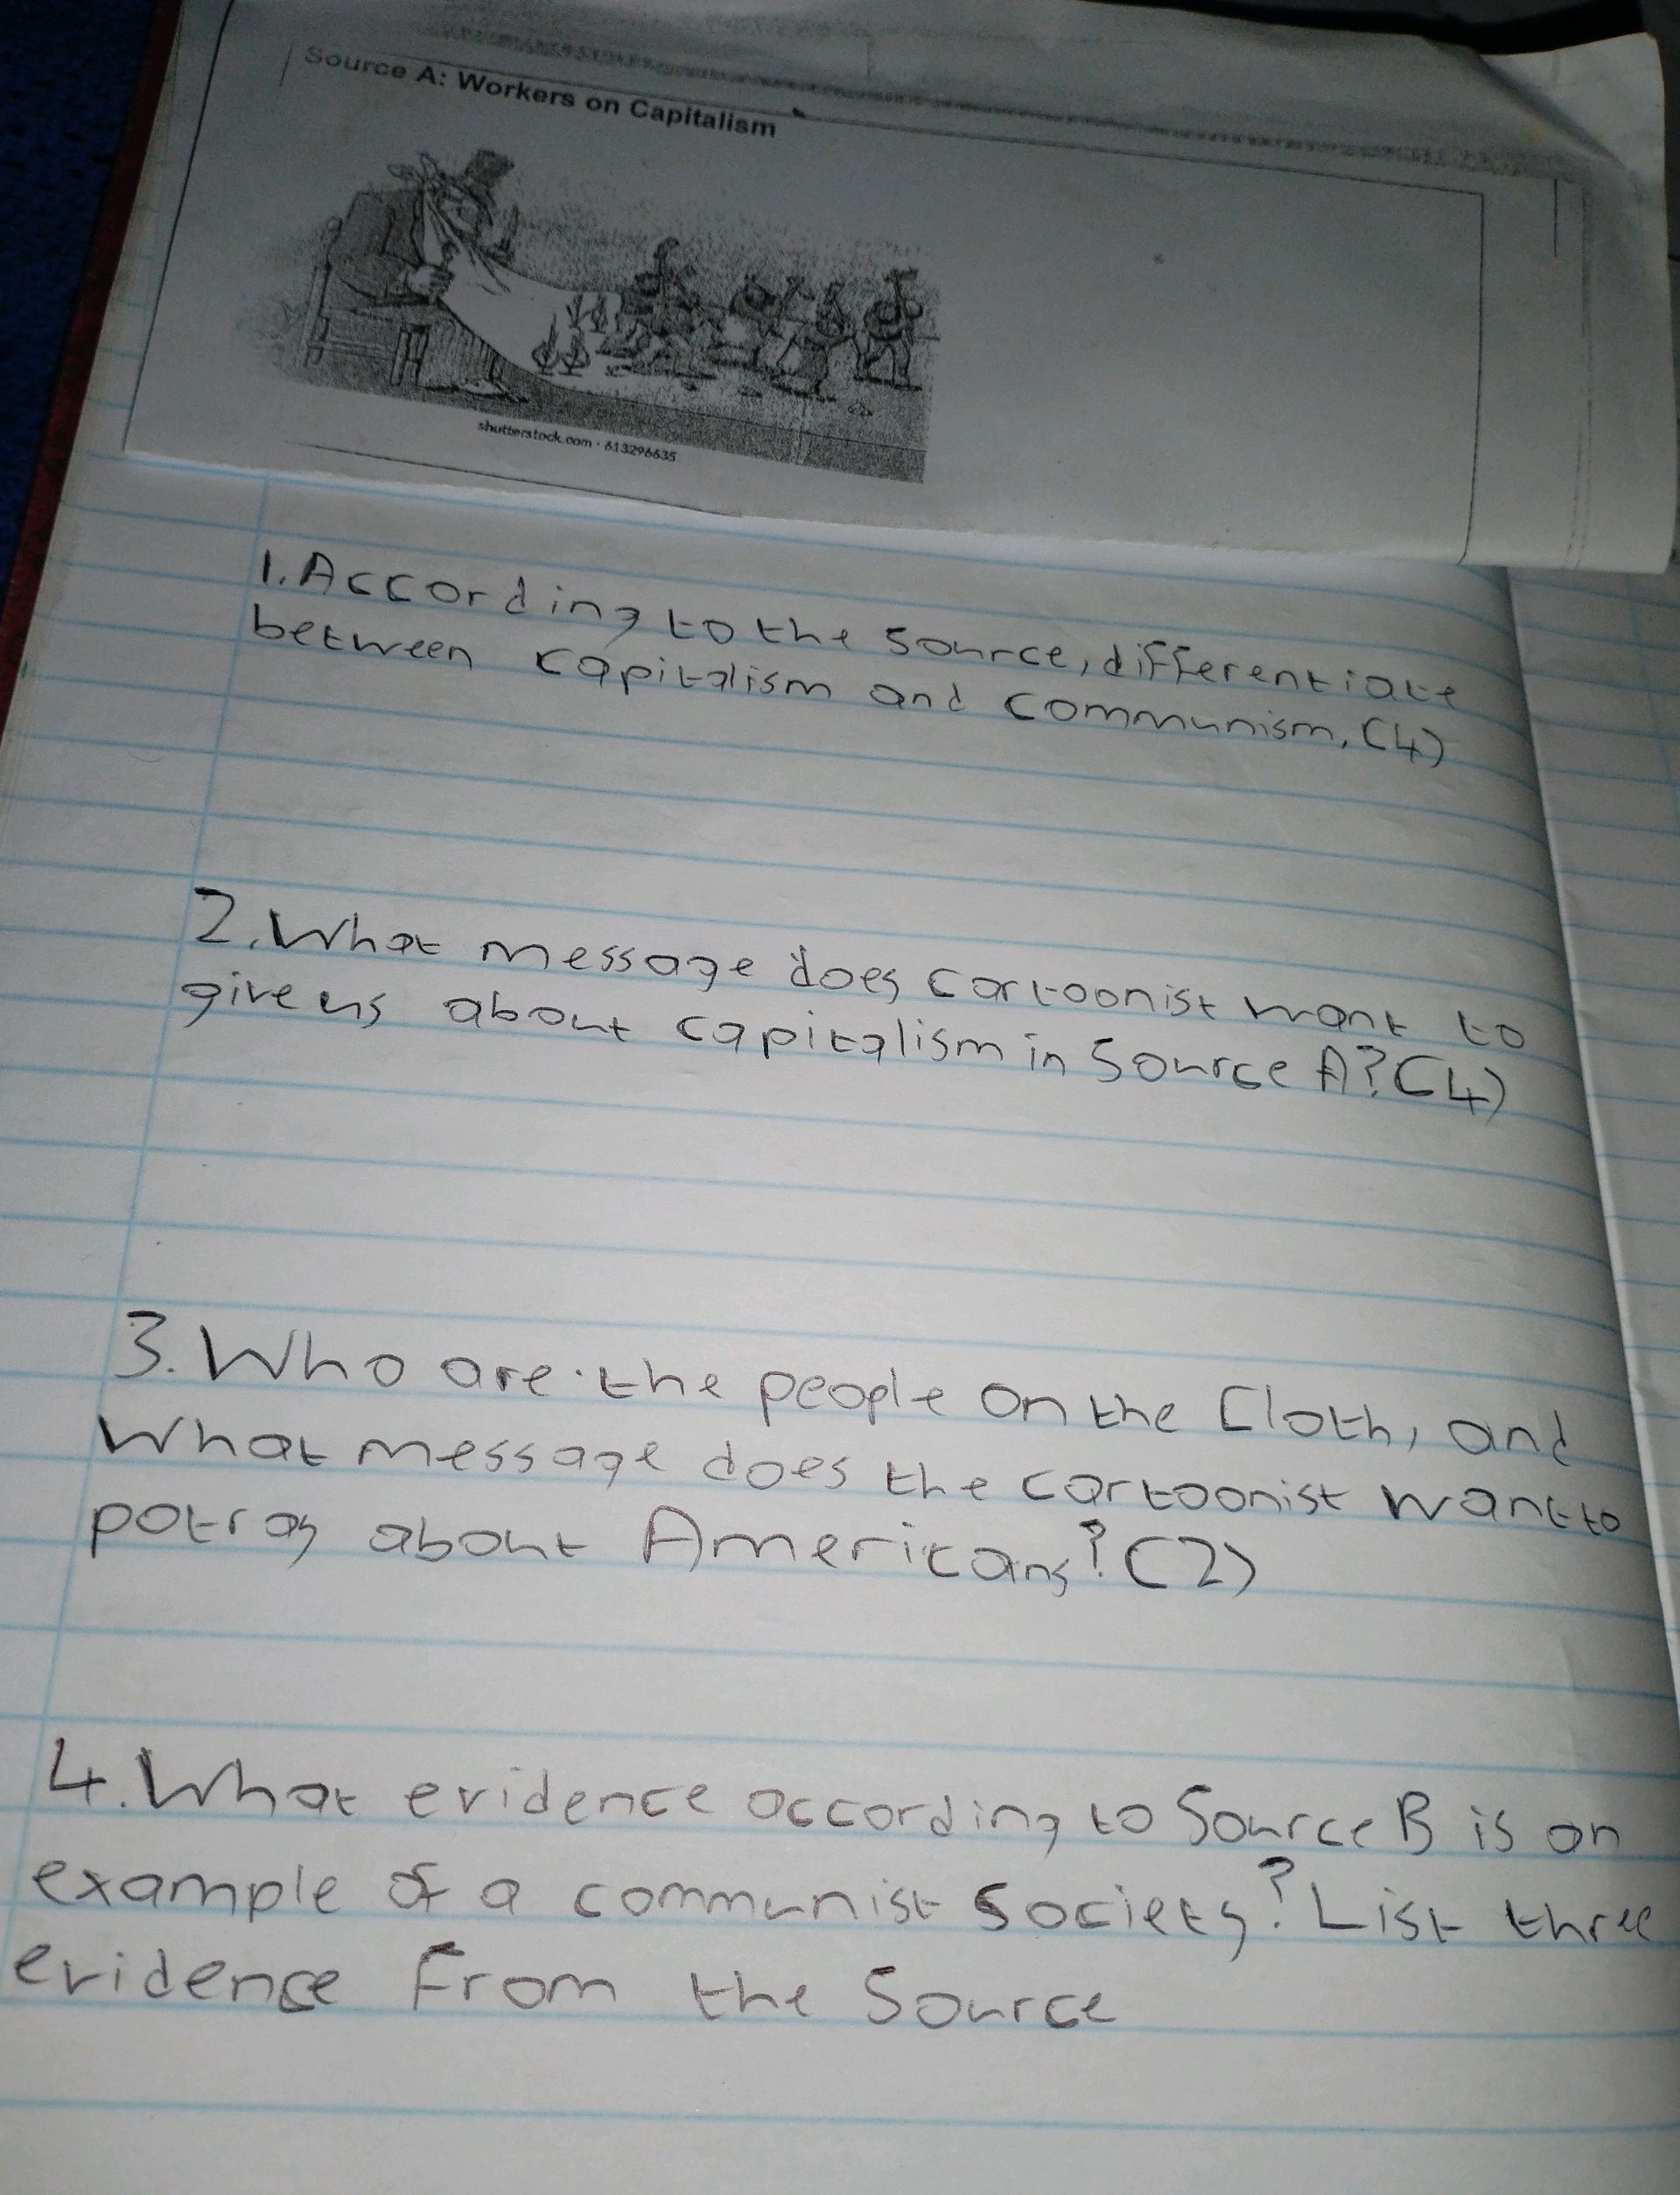 Source A: Workers on Capitalism
shutterstock.com · 613296635
1. According to the source, differentiate
between capitalism and communism. (4)
2. What message does cartoonist want to
give us about capitalism in Source A? (4)
3. Who are the people on the cloth, and
What message does the cartoonist want to
potray about Americans? (2)
4. What evidence according to Source B is an
example of a communist society? List three
evidence from the Source